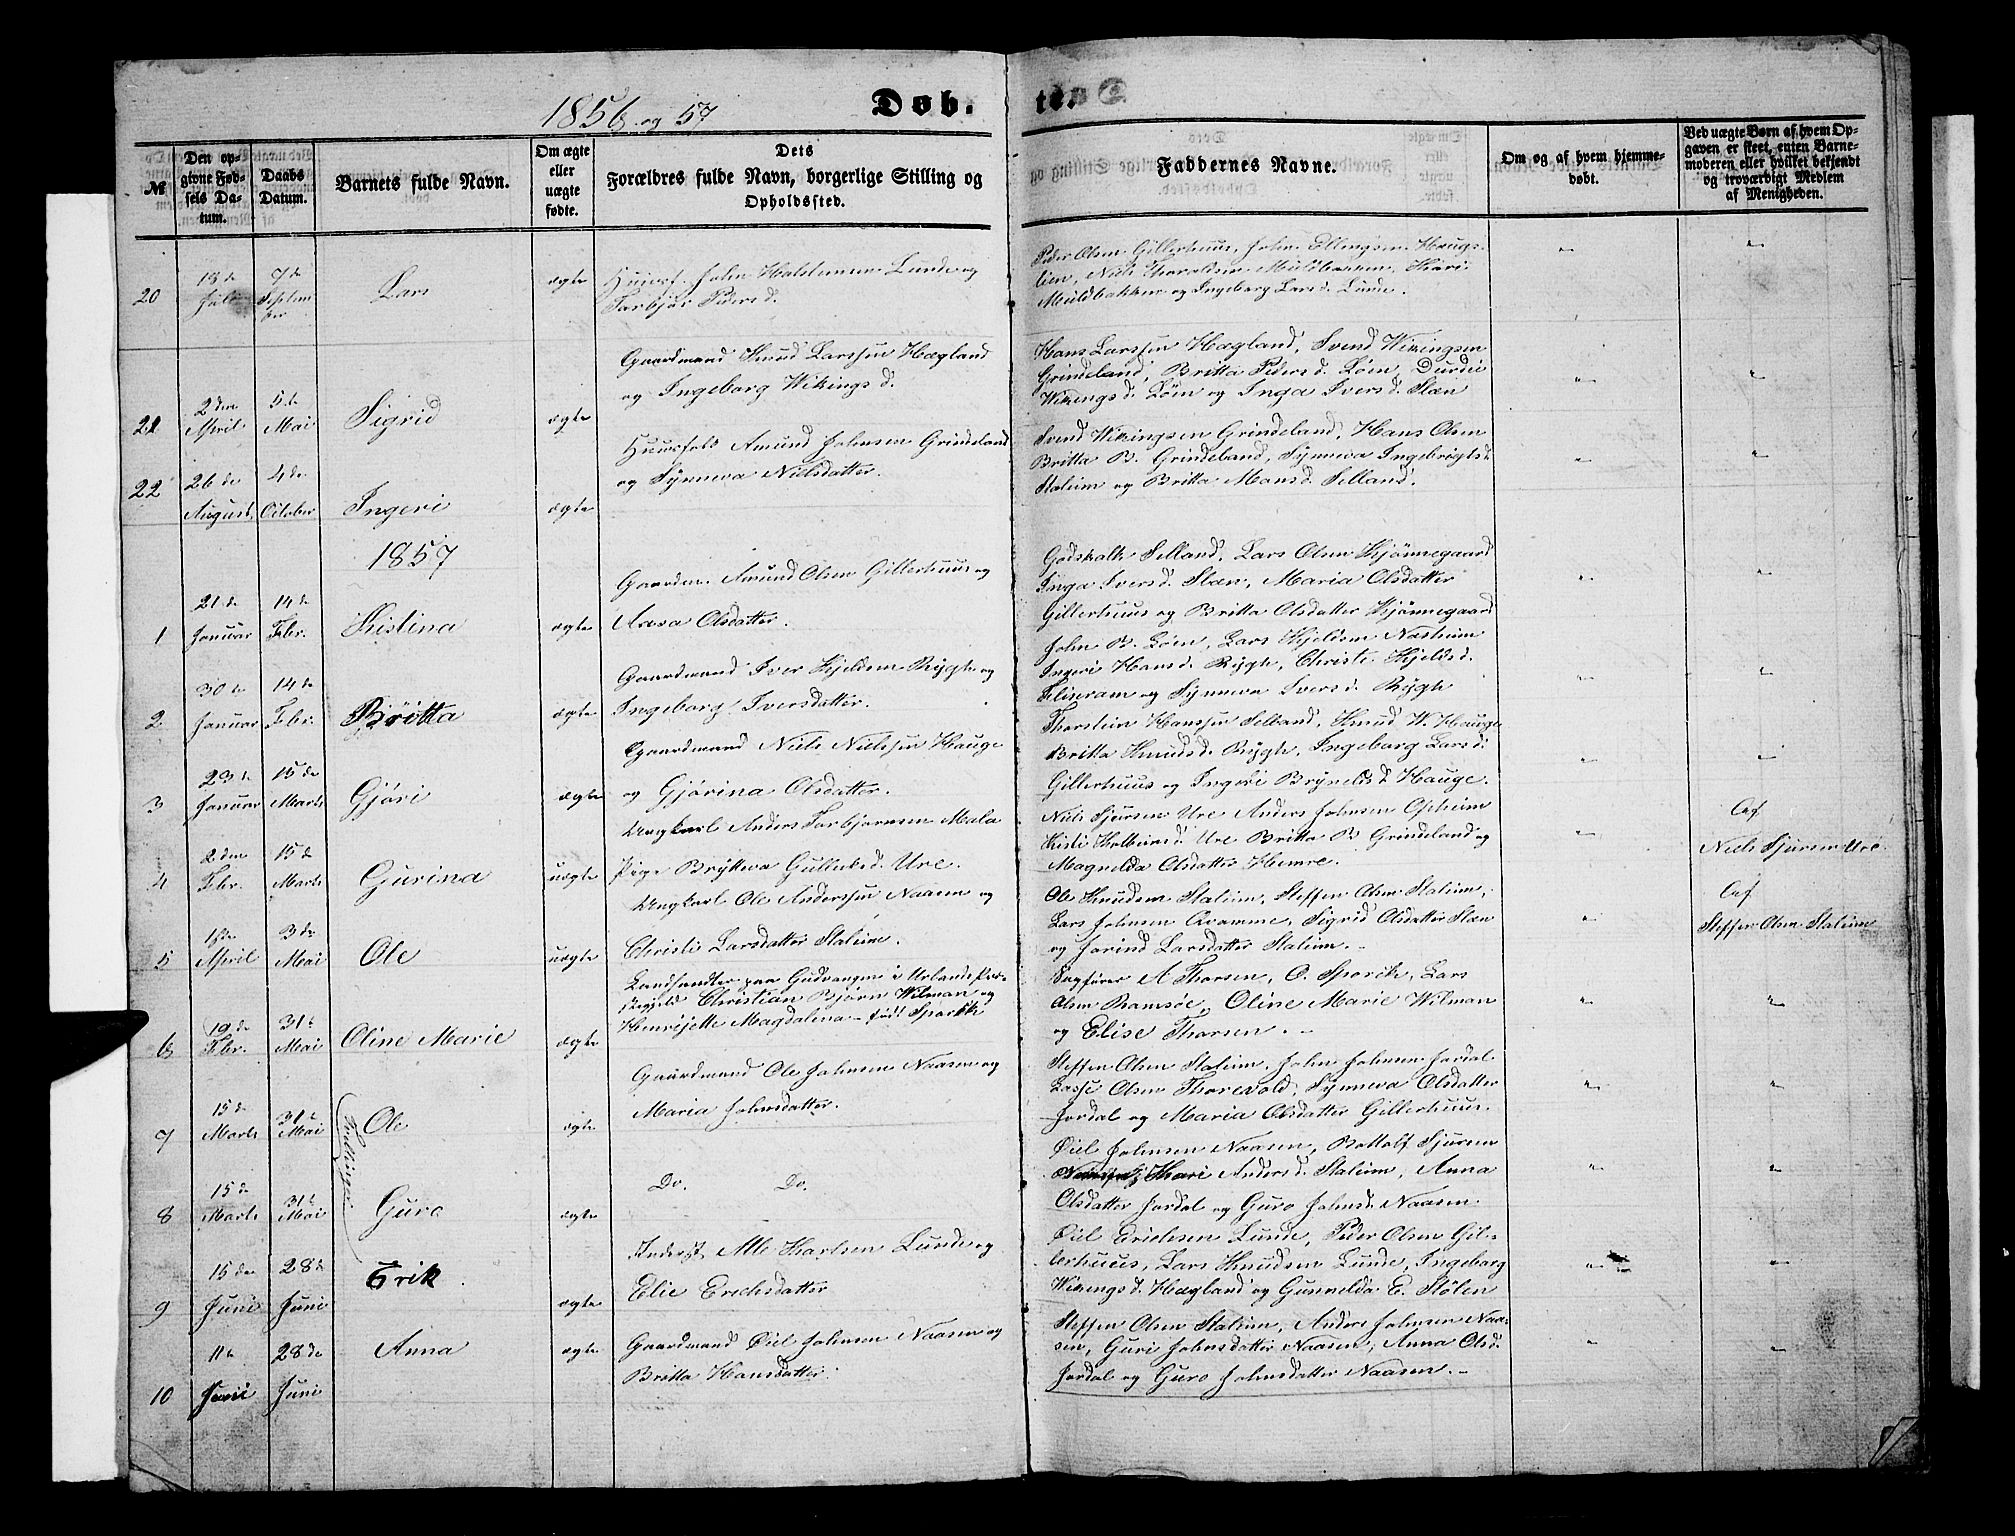 1856 og 57
Døb. te.
№
Den opgivne Fødsels Datum.
Daabs Datum.
Barnets fulde Navn.
Om ægte eller uægte fødte.
Dets Forældres fulde Navn, borgerlige Stilling og Opholdssted.
Faddernes Navne.
Om og af hvem hjemmedøbt.
Ved uægte Børn af hvem Opgaven er skeet, enten Barnemoderen eller hvilket bekjendt og troværdigt Medlem af Menigheden.
20 18de Juli 7de September Lars ægte
John Halstensen Lunde og
Torbjør Pedersd.
Peder Olsen Gillerhuus, John Ellingsen Haugs-
lien, Niels Thoraldsen Muldbakken, Kari
Muldbakken og Ingeborg Larsd. Lunde.
21 2den April 5te Mai Sigrid ægte
Gaardmand Knud Larssen Hægland
og Ingeborg Wikingsd.
Hans Larssen Hægland, Svend Wikingsen
Grindeland, Britta Pedersd. Løen, Durdei
Wikingsd. Løen og Inga Iversd. Slæn
22 26de August 4de October Ingeri ægte
Huusfolk Amund Johnsen Grindeland
og Synneva Nielsdatter.
Svend Wikingsen Grindeland, Hans Olsen
Britta B. Grindeland, Synneva Ingebrigtsd.
Stalium og Britta Monsd. Selland.
1857
1 21de Januar 14de Febr. Kistina ægte
Gaardm. Amund Olsen Gillerhuus og
Aasa Olsdatter.
Godskalk Selland, Lars Olsen Kjønnegaard
Inga Iversd. Slæn, Maria Olsdatter
Gillerhuus og Britta Olsdatter Kjønnegaard
2 30de Januar 14de Febr. Britta ægte
Gaardmand Iver Kjeldsen Rygh og
Ingeborg Iversdatter.
John B. Løen, Lars Kjeldsen Næsheim
Ingeri Hansd. Rygh, Christi Kjeldsd.
Fliseram og Synneva Iversd. Rygh
3 23de Januar 15de Marts Gjøri ægte
Gaardmand Niels Nielssen Hauge
og Gjørina Olsdatter.
Thorstein Hanssen Selland, Knud W. Hauge
Britta Knudsd. Rygh, Ingeborg Larsd.
Gillerhuus og Ingeri Brynelsd. Hauge.
4 2den Febr. 15de Marts Gurina uægte
Ungkarl Anders Torbjørnsen Mala
Pige Brytteva Gulleksd. Ure.
Niels Sjursen Ure Anders Johnsen Opheim
Kisti Kolbeinsd. Ure Britta B. Grindeland og
Magnelda Olsdatter Hemre.
Af
Niels Sjursen Ure
5 18de April 3de Mai Ole uægte
Ungkarl Ole Anderssen Naasen og
Christi Larsdatter Stalium.
Ole Knudsen Stalium, Steffen Olsen Stalium,
Lars Johnsen Qvamme, Sigrid Olsdatter Slæn
og Jorind Larsdatter Stalium.
Af
Steffen Olsen Stalium
6 19de Febr. 31te Mai Oline Marie ægte
Landhandler paa Gudvangen i Urlands Præ-
stegjeld Christian Bjørn Wilman og
Henrijette Magdalena født Sparck
Sagfører A Thorsen, O. Sparck, Lars
Olsen Ramsøe, Oline Marie Wilman
og Elise Thorsen.
7 15de Marts 31te Mai Ole ægte
Tvillinger
Gaardmand Ole Johnsen Naasen og
Maria Johnsdatter.
Steffen Olsen Stalium, John Johnsen Jordal
Lasse Olsen Thorevold, Synneva Olsdatter
Jordal og Maria Olsdatter Gillerhuus.
8 15de Marts 31te Mai Guro ægte
Do. Do.
Oiel Johnsen Naasen, Bottolf Sjursen
Kari Andersd. Stalium, Anna
Olsdatter Jordal og Guro Johnsd. Naasen.
9 15de Juni 28de Juni Erik ægte
Inderst Atle Karlsen Lunde og
Elie Erichsdatter
Oiel Erichsen Lunde, Peder Olsen Gil-
lerhuus, Lars Knudsen Lunde, Ingeborg
Wikingsd. Hægland og Gunnelda E. Stølen
10 11te Juni 28de Juni Anna ægte
Gaardmand Oiel Johnsen Naasen og
Britta Hansdatter.
Steffen Olsen Stalium, Anders Johnsen Naa-
sen, Guri Johnsdatter Naasen, Anna Olsd.
Jordal og Guro Johnsdatter Naasen.